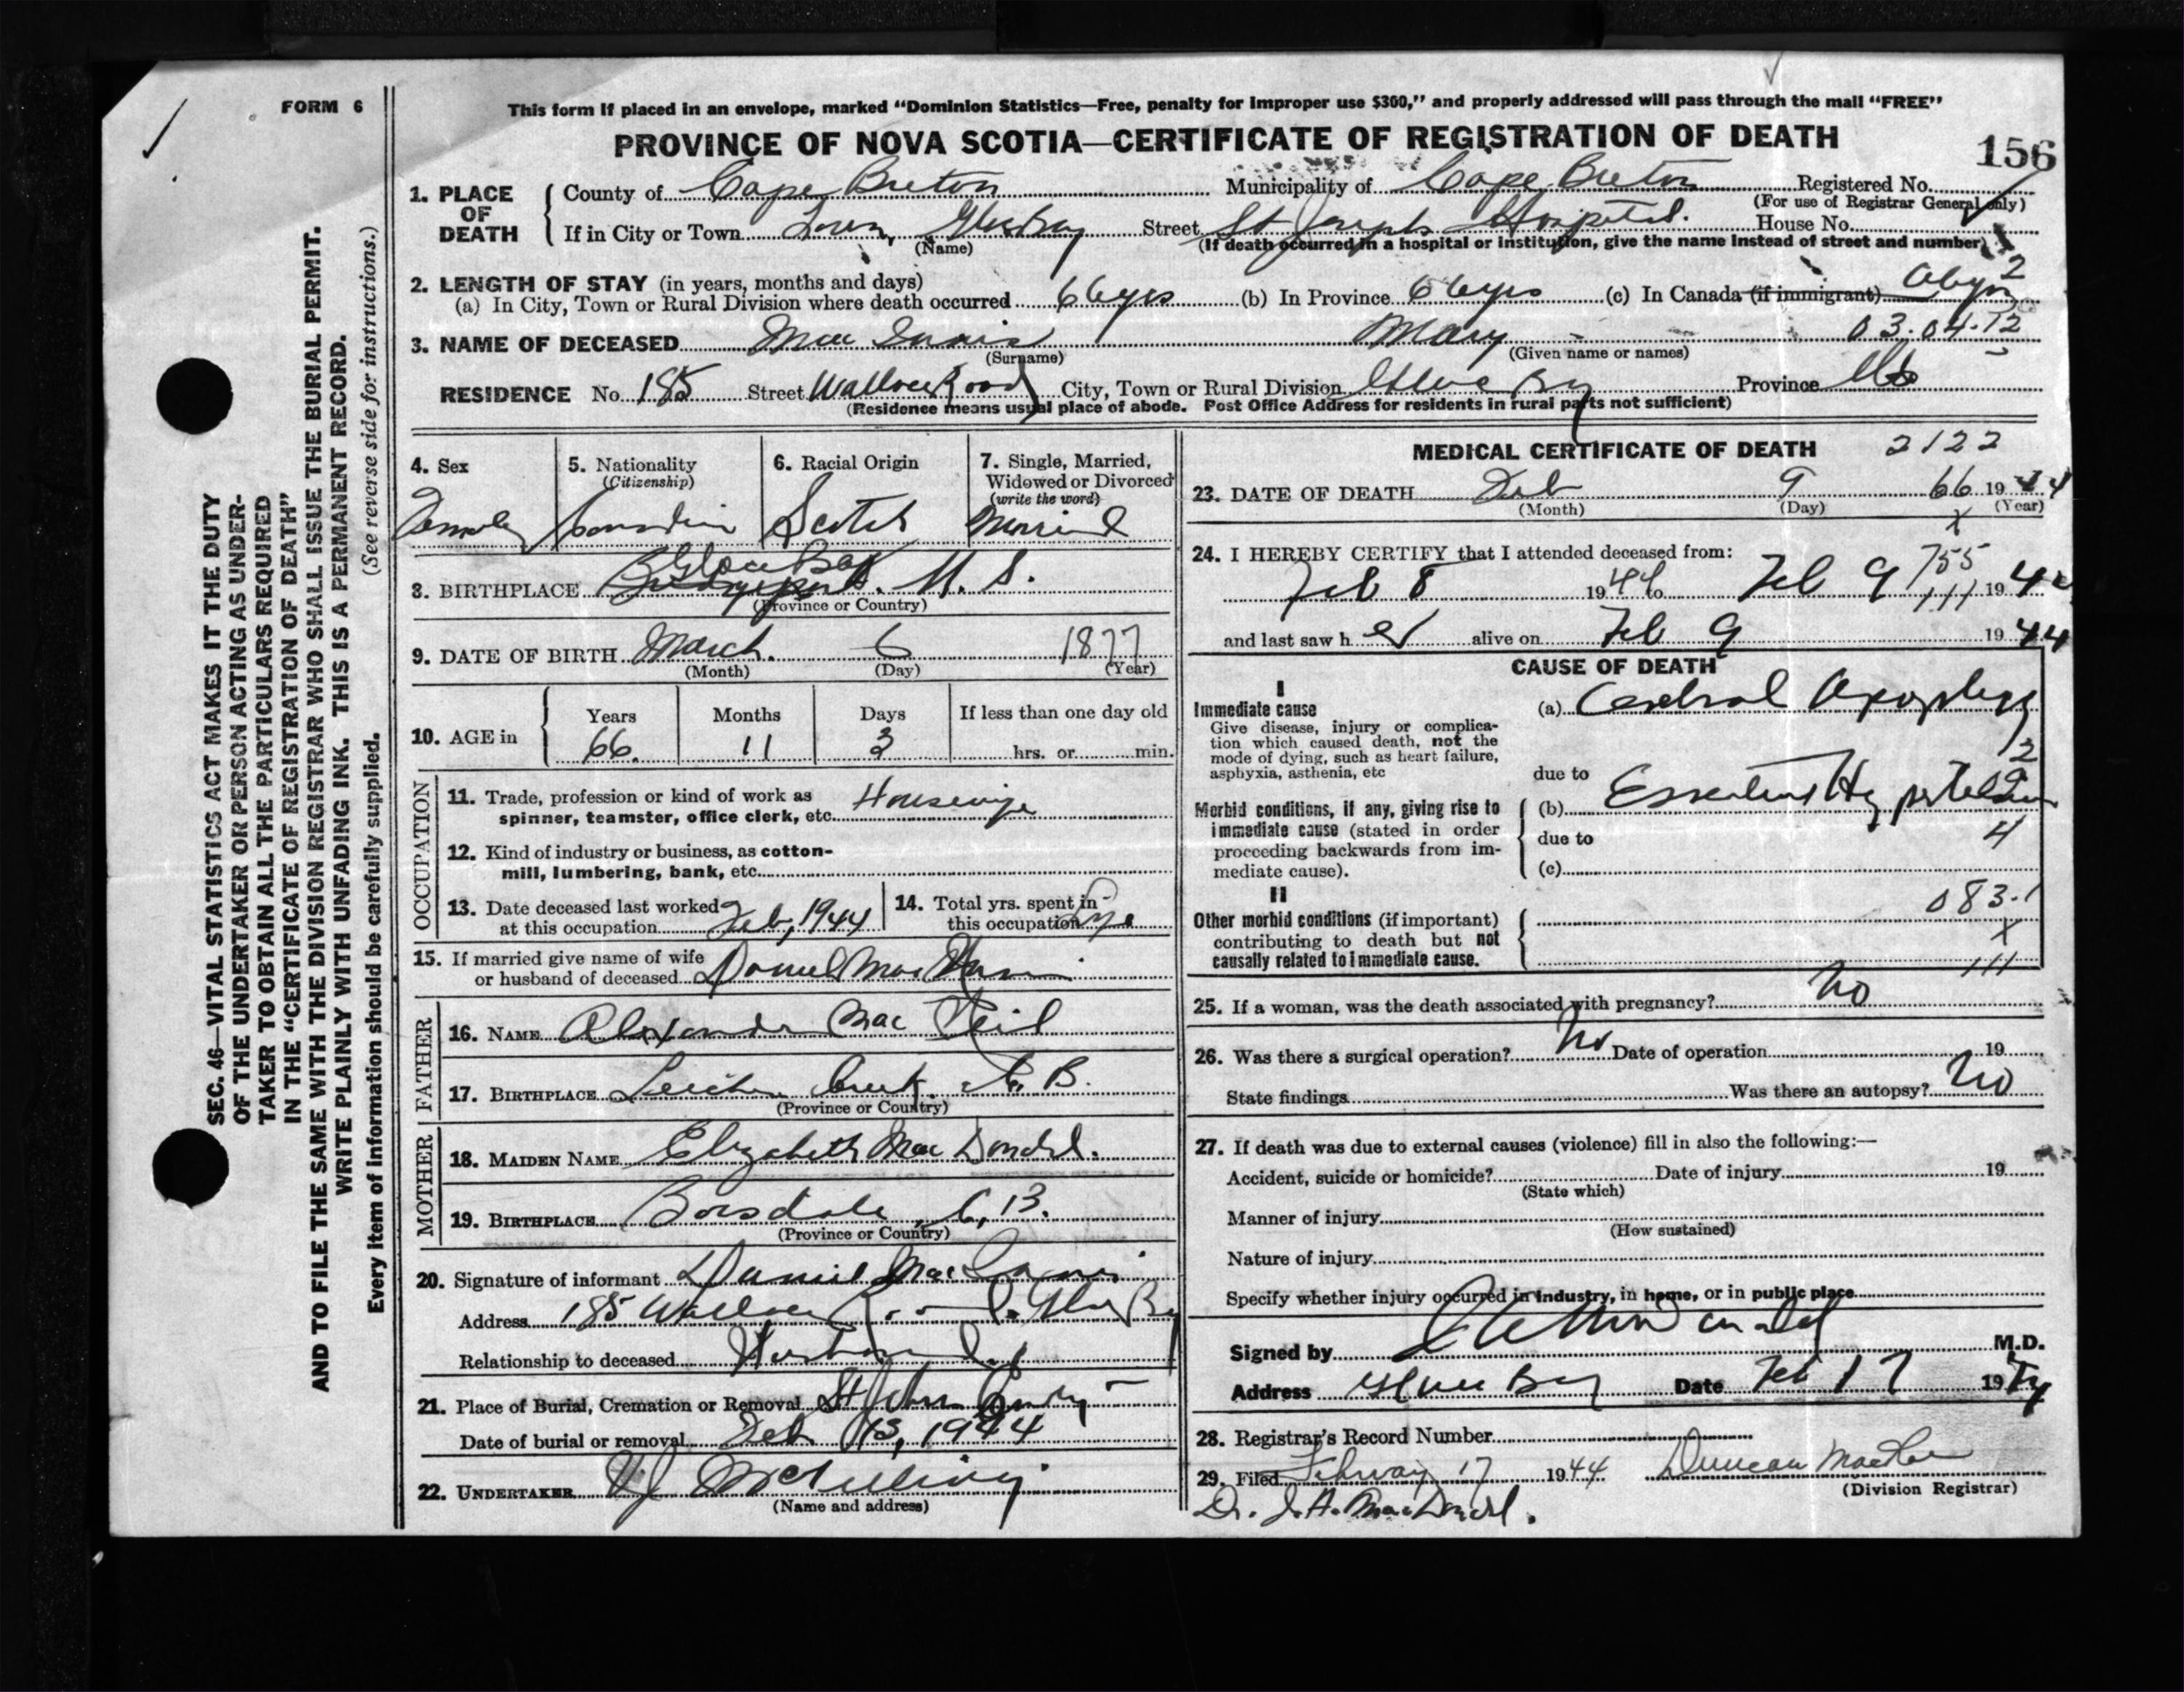 FORM 6
This form if placed in an envelope, marked “Dominion Statistics—Free, penalty for improper use $300,” and properly addressed will pass through the mail “FREE”
PROVINCE OF NOVA SCOTIA—CERTIFICATE OF REGISTRATION OF DEATH
156
1. PLACE OF DEATH
County of Cape Breton Municipality of Cape Breton Registered No.
(For use of Registrar General only)
If in City or Town Town Glace Bay Street St Josephs Hospital. House No.
(Name) (If death occurred in a hospital or institution, give the name instead of street and number)
2. LENGTH OF STAY (in years, months and days)
(a) In City, Town or Rural Division where death occurred 66yrs (b) In Province 66yrs (c) In Canada (if immigrant)
2
03.04.12
3. NAME OF DECEASED Mac Innis Mary
(Surname) (Given name or names)
RESIDENCE No. 185 Street Wallace Road City, Town or Rural Division Glace Bay Province NS
(Residence means usual place of abode. Post Office Address for residents in rural parts not sufficient)
4. Sex
Female
5. Nationality
(Citizenship)
Canadian
6. Racial Origin
Scotch
7. Single, Married, Widowed or Divorced
(write the word)
Married
Glace Bay
8. BIRTHPLACE Bridgeport. N. S.
(Province or Country)
9. DATE OF BIRTH March. 6 1877
(Month) (Day) (Year)
10. AGE in Years 66. Months 11 Days 3 If less than one day old hrs. or min.
OCCUPATION
11. Trade, profession or kind of work as spinner, teamster, office clerk, etc. Housewife
12. Kind of industry or business, as cotton-mill, lumbering, bank, etc.
13. Date deceased last worked at this occupation Feb, 1944
14. Total yrs. spent in this occupation
15. If married give name of wife or husband of deceased Daniel Mac Innis
FATHER
16. NAME Alexander Mac Neil
17. BIRTHPLACE Leitches Creek. C. B.
(Province or Country)
MOTHER
18. MAIDEN NAME Elizabeth Mac Donald.
19. BIRTHPLACE Boisdale, C, B.
(Province or Country)
20. Signature of informant Daniel Mac Innis
Address 185 Wallace Road. Glace Bay
Relationship to deceased Husband.
21. Place of Burial, Cremation or Removal St Johns
Date of burial or removal Feb 13, 1944
22. UNDERTAKER
(Name and address)
MEDICAL CERTIFICATE OF DEATH 2122
23. DATE OF DEATH Feb 9 66 1944
(Month) (Day) (Year)
X
24. I HEREBY CERTIFY that I attended deceased from:
755
Feb 8 1944 to Feb 9 111 1944
and last saw h er alive on Feb 9 1944
CAUSE OF DEATH
I
Immediate cause
Give disease, injury or complication which caused death, not the mode of dying, such as heart failure, asphyxia, asthenia, etc
(a) Cerebral Apoplexy
2
due to
Morbid conditions, if any, giving rise to immediate cause (stated in order proceeding backwards from immediate cause).
(b) Essential Hypertension
due to 4
(c)
II
Other morbid conditions (if important) contributing to death but not causally related to immediate cause.
083.1
X
111
25. If a woman, was the death associated with pregnancy? No
26. Was there a surgical operation? No Date of operation 19
State findings Was there an autopsy? No
27. If death was due to external causes (violence) fill in also the following:—
Accident, suicide or homicide? Date of injury 19
(State which)
Manner of injury
(How sustained)
Nature of injury
Specify whether injury occurred in industry, in home, or in public place
Signed by M.D.
Address Glace Bay Date Feb 17 19
28. Registrar's Record Number
29. Filed February 17 1944 Duncan
(Division Registrar)
Dr. J. A. MacDonald.
SEC. 46—VITAL STATISTICS ACT MAKES IT THE DUTY
OF THE UNDERTAKER OR PERSON ACTING AS UNDER-
TAKER TO OBTAIN ALL THE PARTICULARS REQUIRED
IN THE “CERTIFICATE OF REGISTRATION OF DEATH”
AND TO FILE THE SAME WITH THE DIVISION REGISTRAR WHO SHALL ISSUE THE BURIAL PERMIT.
WRITE PLAINLY WITH UNFADING INK. THIS IS A PERMANENT RECORD.
Every item of information should be carefully supplied. (See reverse side for instructions.)